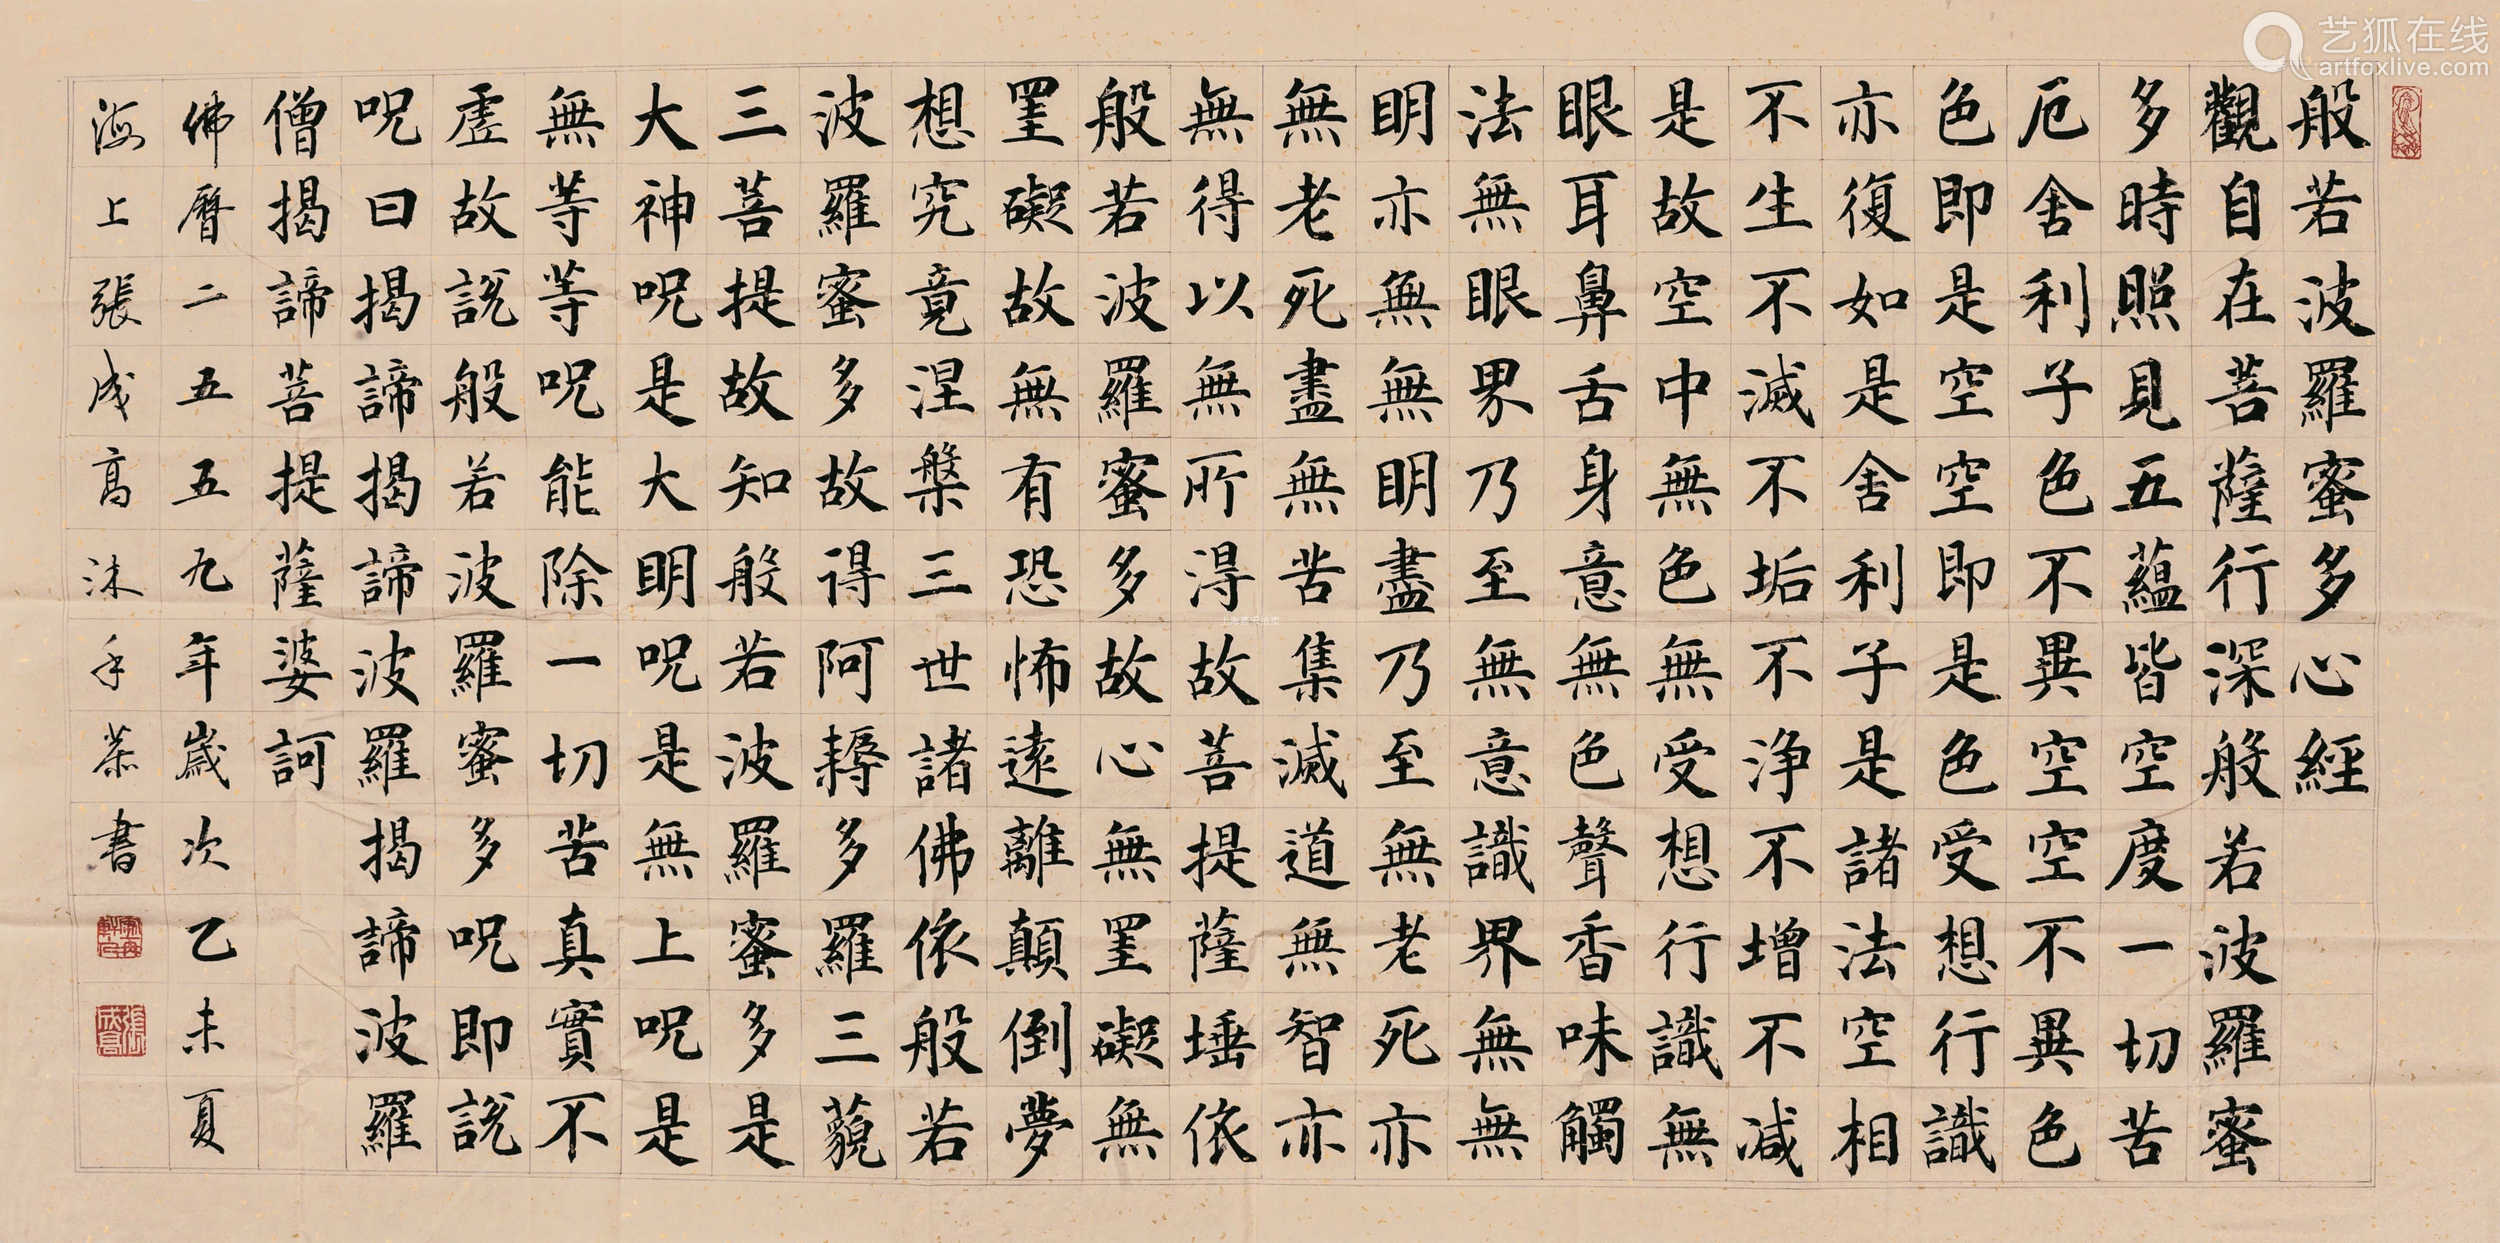 般若波羅蜜多心經
觀自在菩薩行深般若波羅蜜
多時照見五蘊皆空度一切苦
厄舍利子色不異空空不異色
色即是空空即是色受想行識
亦復如是舍利子是諸法空相
不生不滅不垢不淨不增不減
是故空中無色無受想行識無
眼耳鼻舌身意無色聲香味觸
法無眼界乃至無意識界無無
明亦無無明盡乃至無老死亦
無老死盡無苦集滅道無智亦
無得以無所得故菩提薩埵依
般若波羅蜜多故心無罣礙無
罣礙故無有恐怖遠離顛倒夢
想究竟涅槃三世諸佛依般若
波羅蜜多故得阿耨多羅三藐
三菩提故知般若波羅蜜多是
大神呪是大明呪是無上呪是
無等等呪能除一切苦真實不
虛故說般若波羅蜜多呪即說
呪曰揭諦揭諦波羅揭諦波羅
僧揭諦菩提薩婆訶
佛曆二五五九年歲次乙未夏
海上張成高沐手恭書
張成高
艺狐在线
artfoxlive.com